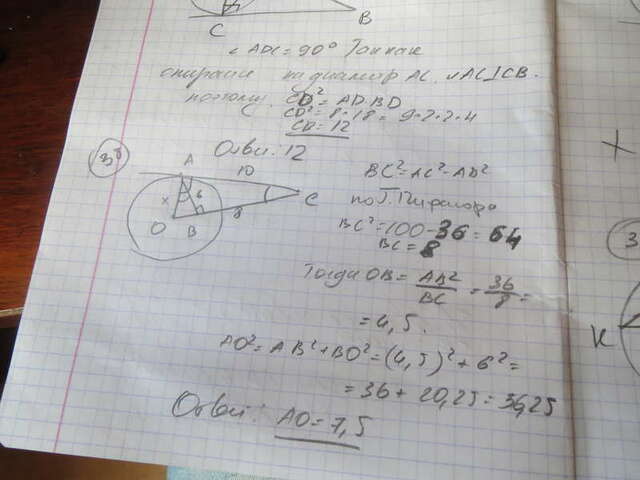 C
B
∠ADC = 90° Так как
на диаметр AC. AC⊥CB.
поэтому CD² = AD·BD
CD² = 8·18 = 9·2·2·4
CD = 12
Ответ: 12
3б
A
10
x
6
8
C
O
B
BC² = AC² - AB²
по Т. Пифагора
BC² = 100 - 36 = 64
BC = 8
Тогда OB = AB²/BC = 36/8 =
= 4,5.
AO² = AB² + BO² = (4,5)² + 6² =
= 36 + 20,25 = 56,25
Ответ: AO = 7,5
3
K